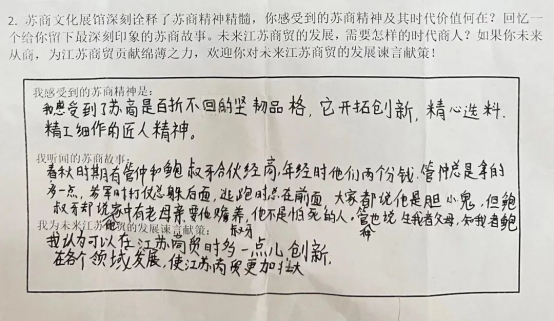 2. 苏商文化展馆深刻诠释了苏商精神精髓，你感受到的苏商精神及其时代价值何在？回忆一
个给你留下最深刻印象的苏商故事。未来江苏商贸的发展，需要怎样的时代商人？如果你未来
从商，为江苏商贸贡献绵薄之力，欢迎你对未来江苏商贸的发展谏言献策！
我感受到的苏商精神是：
我感受到了苏商是百折不回的坚韧品格，它开拓创新，精心选料，
精工细作的匠人精神。
我听闻的苏商故事：
春秋时期有管仲和鲍叔牙合伙经商，年经时他们两个分钱，管仲总是拿的
多一点，若军时打仗总躲后面，逃跑时总在前面，大家都说他是胆小鬼，但鲍
叔牙却说他家中有老母亲要他赡养，他不是怕死的人，管仲也说生我者父母，知我者鲍叔牙
我为未来江苏商贸的发展谏言献策：
我认为可以在江苏商贸时多一点儿创新，
在各个领域发展，使江苏商贸更加壮大